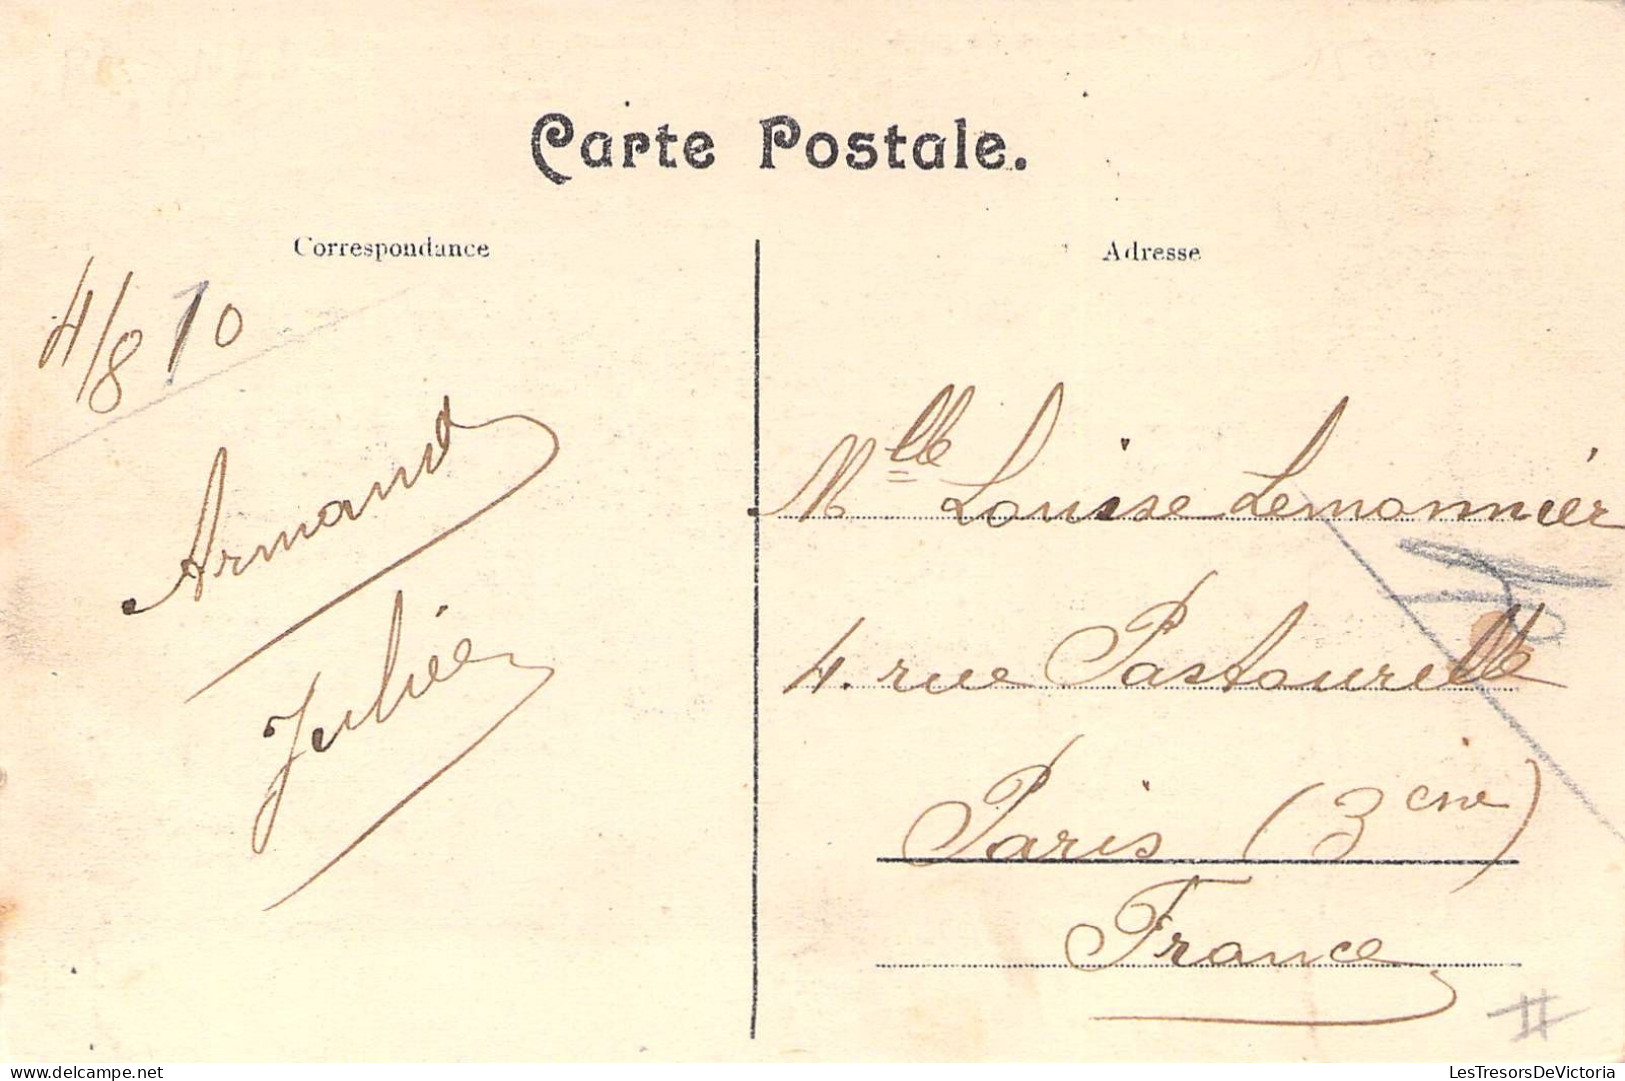 Carte Postale.
Correspondance
Adresse
4/8 10
Armand
Julien
Mlle Louise Lemonnier
4. rue Pastourelle
Paris (3ème)
France
LesTresorsDeVictoria